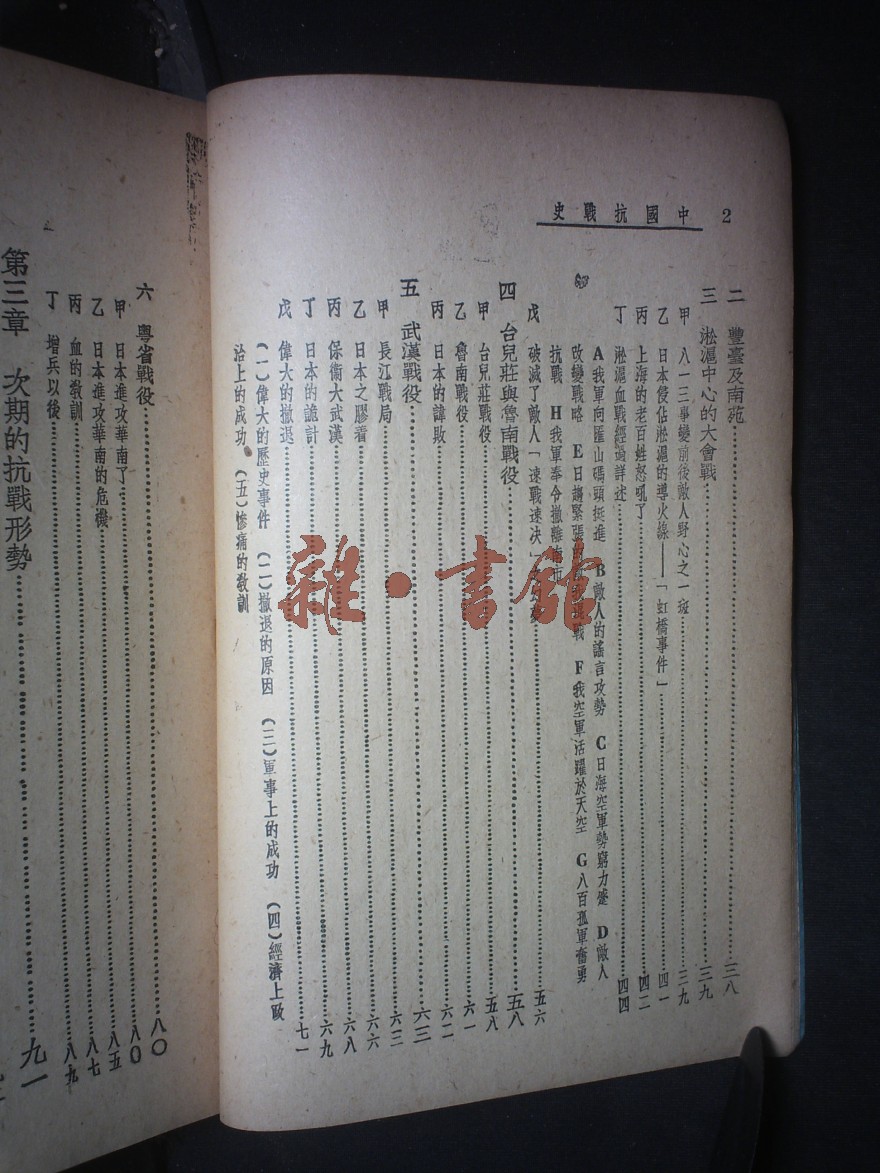 2 中國抗戰史
二 豐臺及南苑……三八
三 淞滬中心的大會戰……三九
甲 八一三事變前後敵人野心之一斑……三九
乙 日本侵佔淞滬的導火線——「虹橋事件」……四一
丙 上海的老百姓怒吼了……四二
丁 淞滬血戰經過詳述……四四
A我軍向匯山碼頭挺進 B敵人的謠言攻勢 C日海空軍勢窮力蹙 D敵人
改變戰略 E日趨緊張的 戰 F我空軍活躍於天空 G八百孤軍奮勇
抗戰 H我軍奉令撤離南市
戊 破滅了敵人「速戰速決」……五六
四 台兒莊與魯南戰役……五八
甲 台兒莊戰役……五八
乙 魯南戰役……六一
丙 日本的諱敗……六二
五 武漢戰役……六三
甲 長江戰局……六三
乙 日本之膠着……六六
丙 保衞大武漢……六八
丁 日本的詭計……六九
戊 偉大的撤退……七一
(一)偉大的歷史事件 (二)撤退的原因 (三)軍事上的成功 (四)經濟上政
治上的成功 (五)慘痛的敎訓
六 粵省戰役……八〇
甲 日本進攻華南了……八〇
乙 日本進攻華南的危機……八五
丙 血的敎訓……八七
丁 增兵以後……八九
第三章 次期的抗戰形勢……九一
雜·書館